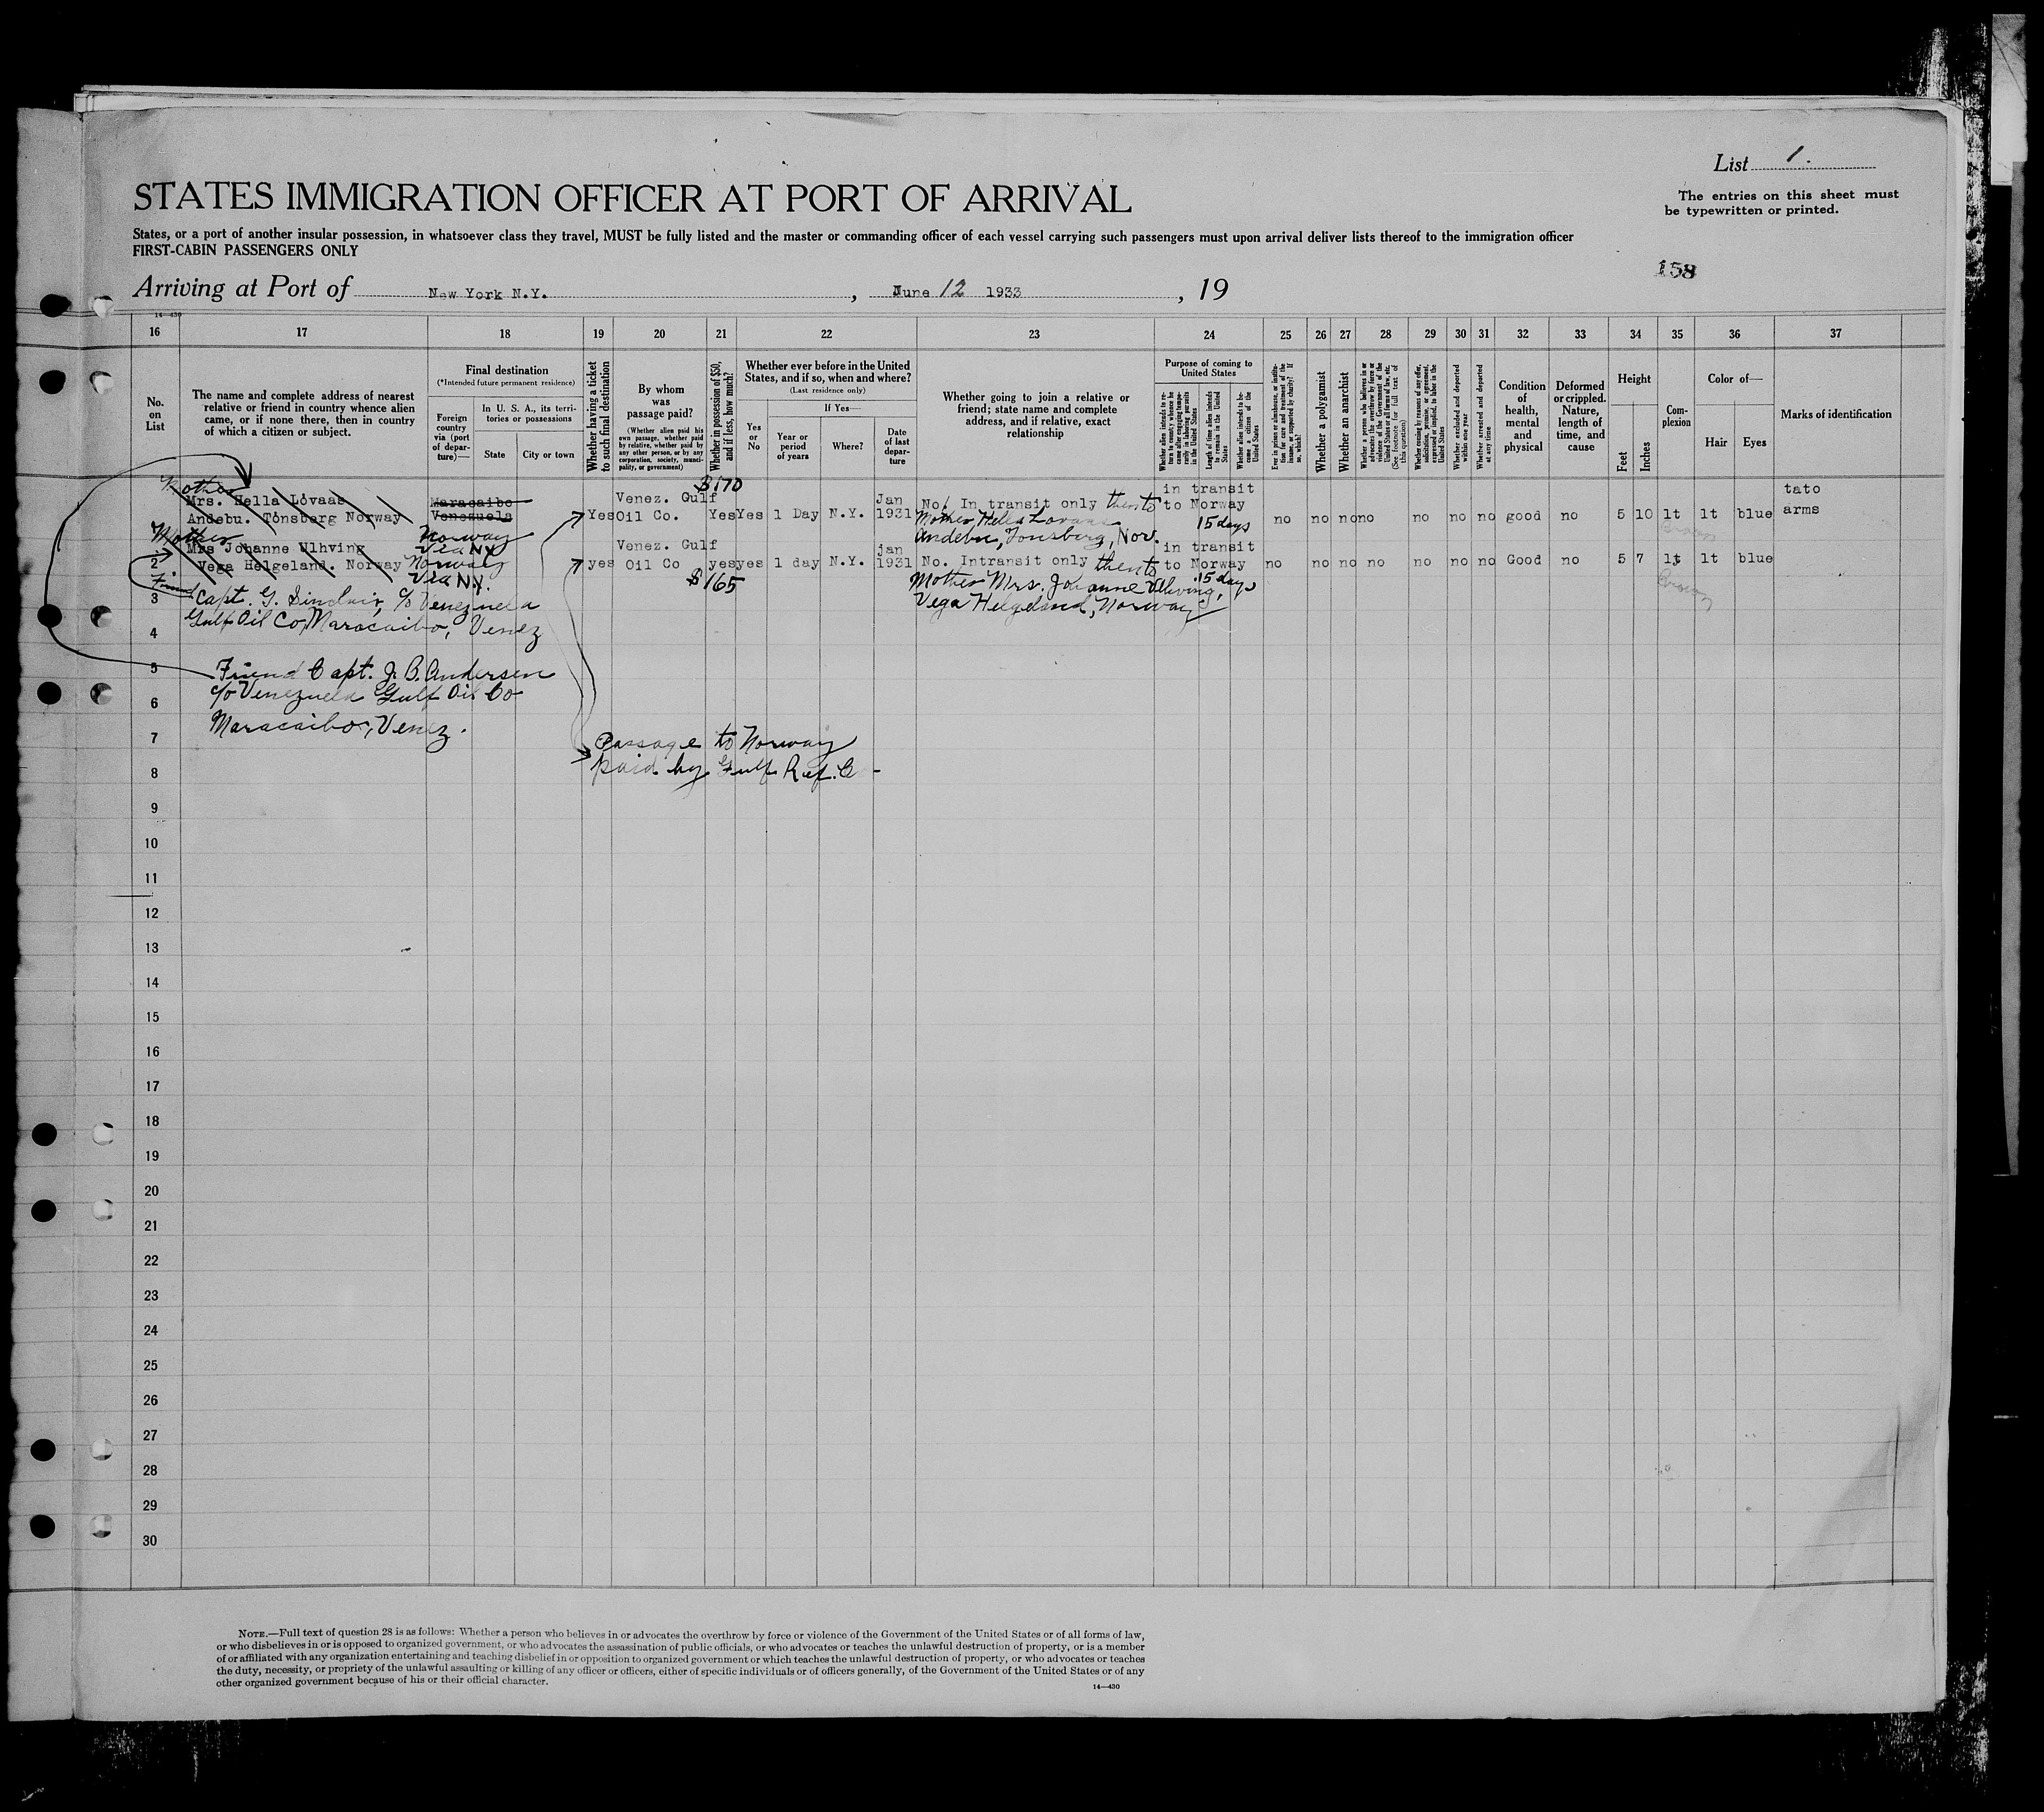 List 1.
The entries on this sheet must
be typewritten or printed.
STATES IMMIGRATION OFFICER AT PORT OF ARRIVAL
States, or a port of another insular possession, in whatsoever class they travel, MUST be fully listed and the master or commanding officer of each vessel carrying such passengers must upon arrival deliver lists thereof to the immigration officer
FIRST-CABIN PASSENGERS ONLY
158
Arriving at Port of New York N.Y. , June 12 1933 , 19
14—430
16 17 18 19 20 21 22 23 24 25 26 27 28 29 30 31 32 33 34 35 36 37
No. on List
The name and complete address of nearest
relative or friend in country whence alien
came, or if none there, then in country
of which a citizen or subject.
Final destination
(*Intended future permanent residence)
Foreign country via (port of departure)—
In U. S. A., its territories or possessions
State
City or town
Whether having a ticket to such final destination
By whom was passage paid?
(Whether alien paid his own passage, whether paid by relative, whether paid by any other person, or by any corporation, society, municipality, or government)
Whether in possession of $50, and if less, how much?
Whether ever before in the United
States, and if so, when and where?
(Last residence only)
Yes or No
If Yes—
Year or period of years
Where?
Date of last departure
Whether going to join a relative or
friend; state name and complete
address, and if relative, exact
relationship
Purpose of coming to
United States
Whether alien intends to return to country whence he came after engaging temporarily in laboring pursuits in the United States
Length of time alien intends to remain in the United States
Whether alien intends to become a citizen of the United States
Ever in prison or almshouse, or institution for care and treatment of the insane, or supported by charity? If so, which?
Whether a polygamist
Whether an anarchist
Whether a person who believes in or advocates the overthrow by force or violence of the Government of the United States or all forms of law, etc. (See footnote for full text of this question)
Whether coming by reasons of any offer, solicitation, promise, or agreement, expressed or implied, to labor in the United States
Whether excluded and deported within one year
Whether arrested and deported at any time
Condition of health, mental and physical
Deformed or crippled. Nature, length of time, and cause
Height
Feet
Inches
Complexion
Color of—
Hair
Eyes
Marks of identification
Mother
Mrs. Hella Lövaas
Andebu. Tönsberg Norway
Maracaibo
Venezuela
Norway
via NY
Yes
Venez. Gulf
Oil Co.
$170
Yes Yes 1 Day N.Y. Jan 1931
No. In transit only thents
Mother, Hella Lovaas
Andebu, Tonsberg, Nor.
in transit
to Norway
15 days
no no no no no no no good no 5 10 lt lt blue
brown
tato
arms
Mother
Mrs Johanne Ulhving
2 Vega Helgeland. Norway
Norway
via N.Y.
yes
Venez. Gulf
Oil Co
yes yes 1 day N.Y. jan 1931
$165
No. Intransit only thents
Mother Mrs. Johanne Ulhving,
Vega Helgeland, Norway
in transit
to Norway
15 days
no no no no no no no Good no 5 7 lt lt blue
Brown
Friend
3 Capt. G. Sinclair, c/o Venezuela
Gulf Oil Co, Maracaibo, Venez
4
5 Friend Capt. J. B. Andersen
c/o Venezuela Gulf Oil Co
6
Maracaibo, Venez.
7 Passage to Norway
8 paid by Gulf Ref. Co
9
10
11
12
13
14
15
16
17
18
19
20
21
22
23
24
25
26
27
28
29
30
NOTE.—Full text of question 28 is as follows: Whether a person who believes in or advocates the overthrow by force or violence of the Government of the United States or of all forms of law,
or who disbelieves in or is opposed to organized government, or who advocates the assassination of public officials, or who advocates or teaches the unlawful destruction of property, or is a member
of or affiliated with any organization entertaining and teaching disbelief in or opposition to organized government or which teaches the unlawful destruction of property, or who advocates or teaches
the duty, necessity, or propriety of the unlawful assaulting or killing of any officer or officers, either of specific individuals or of officers generally, of the Government of the United States or of any
other organized government because of his or their official character.
14—430